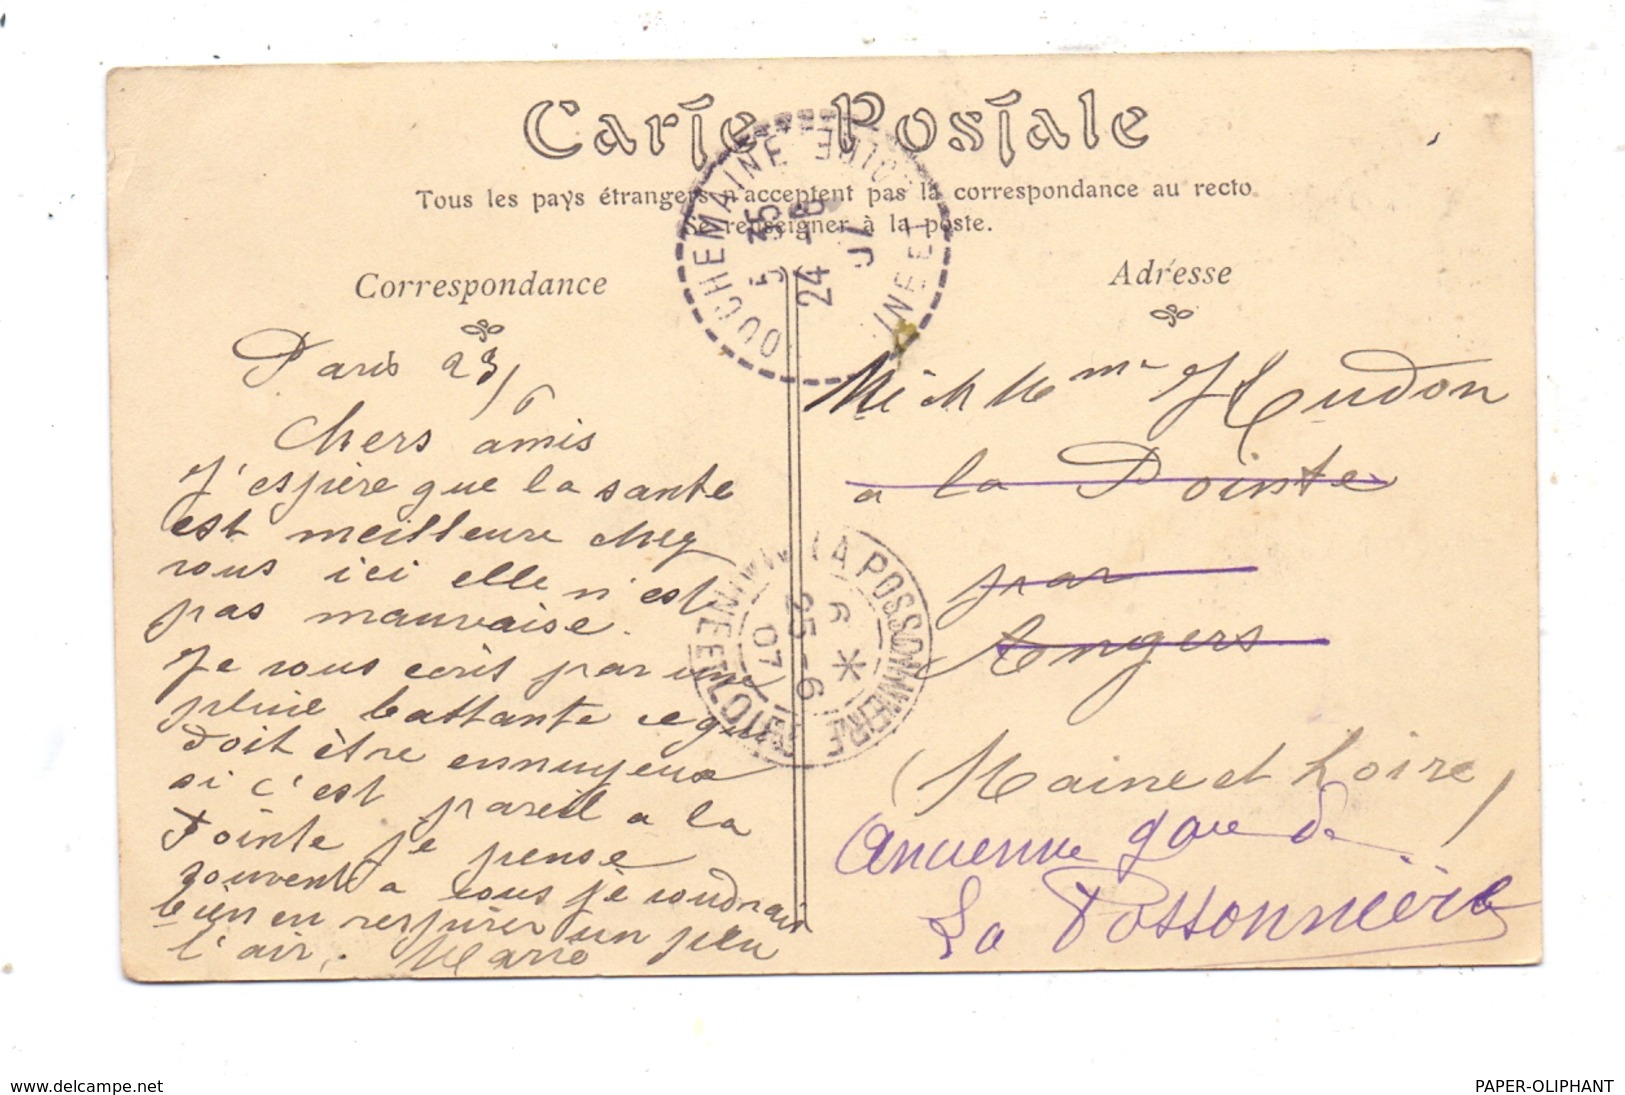 Carte Postale
Tous les pays étrangers n'acceptent pas la correspondance au recto.
Se renseigner à la poste.
Correspondance
Adresse
BOUCHEMAINE
24 -6
07
INE ET LOIRE
Paris 23/6
Chers amis
J'espère que la santé
est meilleure chez
vous ici elle n'est
pas mauvaise.
Je vous ecris par une
pluie battante ce qui
doit être ennuyeux
si c'est pareil a la
Pointe je pense
souvent a vous je voudrais
bien en respirer un peu
l'air. Marie
LA POSSONNIERE
MAINE ET LOIRE
6
25 -6
07
Mme Houdon
a la Pointe
par
Angers
(Maine et Loire)
Ancienne gare de
La Possonnière
www.delcampe.net
PAPER-OLIPHANT